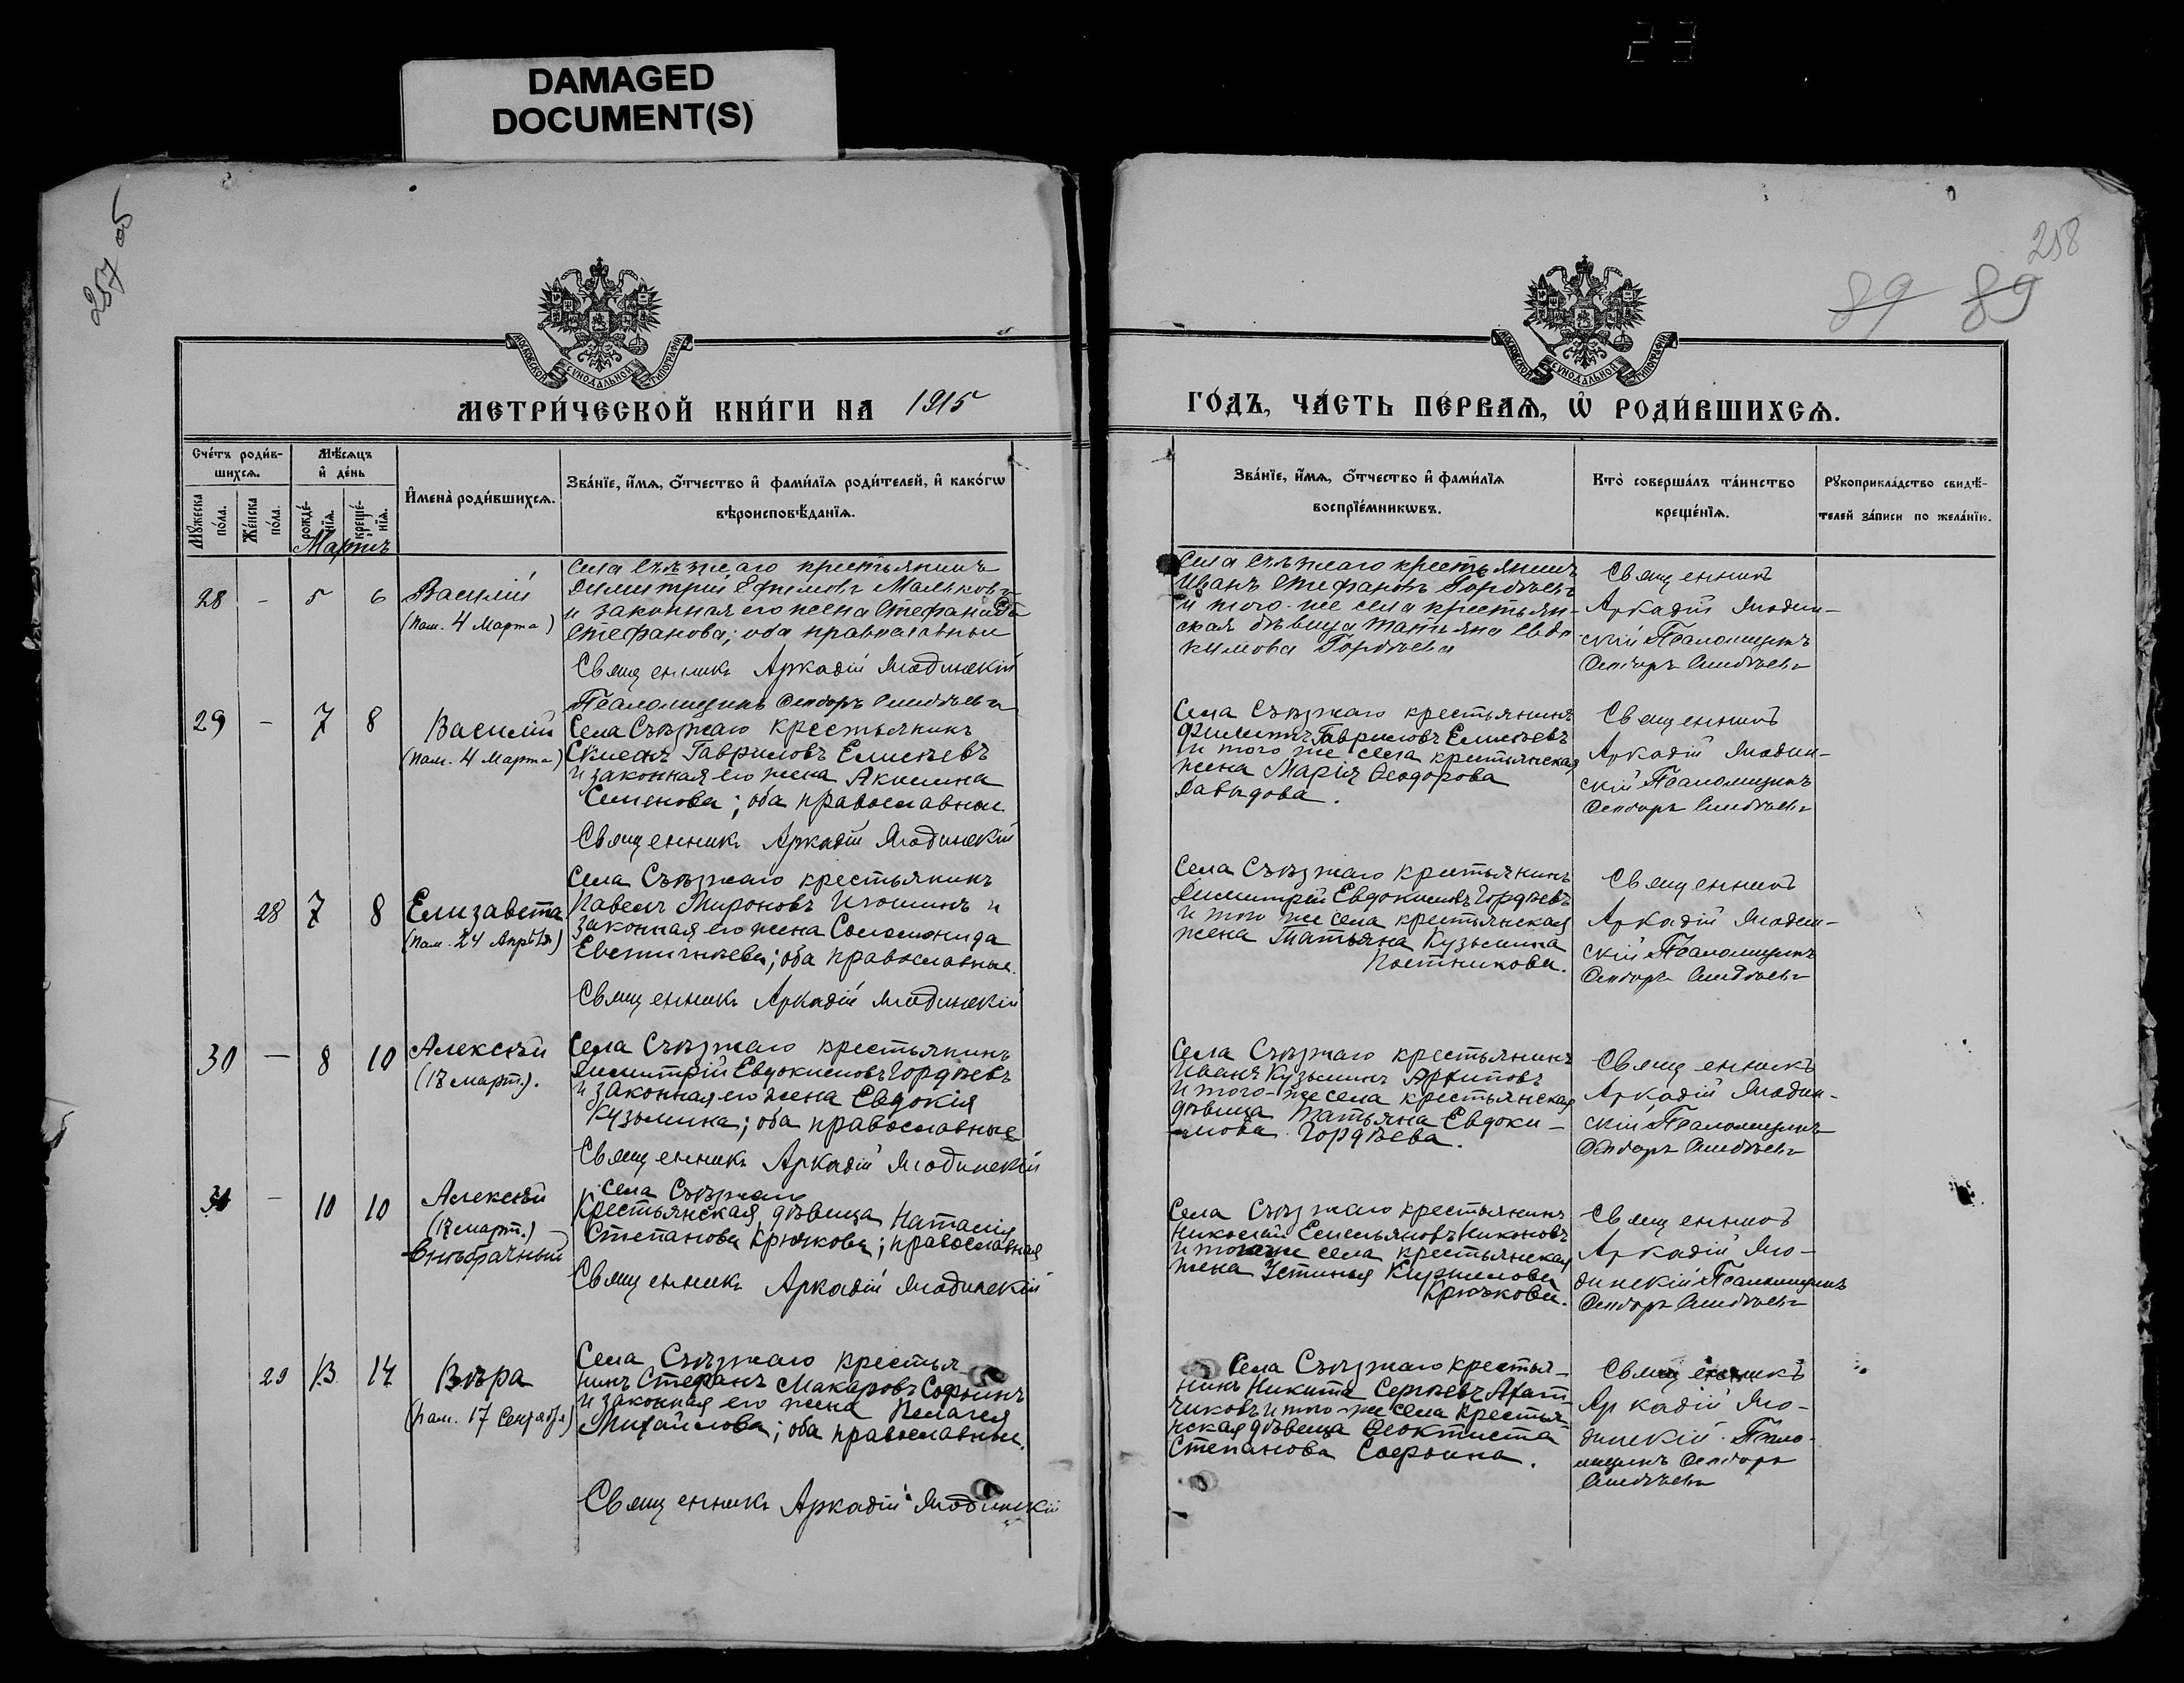 DAMAGED
DOCUMENT(S)
257 об
258
89 89
МОСКОВСКОЙ СѴНОДАЛЬНОЙ ТИПОГРАФІИ
МОСКОВСКОЙ СѴНОДАЛЬНОЙ ТИПОГРАФІИ
МЕТРИ́ЧЕСКОЙ КНИ́ГИ НА 1915
ГО́ДЪ, ЧА́СТЬ ПЕ́РВАѦ, Ѡ҆ РОДИ́ВШИХСѦ.
Сче́тъ роди́в-
шихсѧ.
Мꙋ́жеска
по́ла.
Же́нска
по́ла.
Мѣ́сѧцъ
и҆ де́нь
рожде́-
нїѧ.
креще́-
нїѧ.
И҆мена̀ роди́вшихсѧ.
Зва́нїе, и҆́мѧ, ѻ҆́тчество и҆ фами́лїѧ роди́телей, и҆ како́гѡ
вѣроисповѣ́данїѧ.
Зва́нїе, и҆́мѧ, ѻ҆́тчество и҆ фами́лїѧ
воспрїе́мникѡвъ.
Кто̀ соверша́лъ та́инство
креще́нїѧ.
Рꙋкоприкла́дство свидѣ́-
телей за́писи по жела́нїю.
Мартъ
28 - 5 6 Василій
(пам. 4 Марта)
Села Съѣзжаго крестьянинъ
Димитрій Ефимовъ Мальковъ
и законная его жена Стефанида
Стефанова; оба православные
Священникъ Аркадій Ягодинскій
Псаломщикъ
Села Съѣзжаго крестьянинъ
Иванъ Стефановъ Гордѣевъ
и того-же села крестьян-
ская дѣвица Татьяна Евдо
кимова Гордѣева
Священникъ
Аркадій Ягодин-
скій Псаломщикъ
29 - 7 8 Василій
(пам. 4 Марта)
Села Съѣзжаго крестьянинъ
Гавриловъ Елисѣевъ
и законная его жена Акилина
Семенова; оба православные
Священникъ Аркадій Ягодинскій
Села Съѣзжаго крестьянинъ
Филиппъ Гавриловъ Елисѣевъ
и того же села крестьянская
жена Марія Ѳеодорова
Давыдова.
Священникъ
Аркадій Ягодин-
скій Псаломщикъ
28 7 8 Елизавета
(пам. 24 Апрѣля)
Села Съѣзжаго крестьянинъ
Павелъ Мироновъ Игошинъ и
законная его жена Соломонида
Евстигнѣева; оба православные.
Священникъ Аркадій Ягодинскій
Села Съѣзжаго крестьянинъ
Димитрій Евдокимовъ Гордѣевъ
и того же села крестьянская
жена Татьяна Кузьмина
Постникова.
Священникъ
Аркадій Ягодин-
скій Псаломщикъ
30 — 8 10 Алексѣй
(17 март.).
Села Съѣзжаго крестьянинъ
Димитрій Евдокимовъ Гордѣевъ
и законная его жена Евдокія
Кузьмина; оба православные
Священникъ Аркадій Ягодинскій
Села Съѣзжаго крестьянинъ
Иванъ Кузьминъ Архиповъ
и того-же села крестьянская
дѣвица Татьяна Евдоки-
-мова Гордѣева.
Священникъ
Аркадій Ягодин-
скій Псаломщикъ
31 - 10 10 Алексѣй
(17 март.)
Внѣбрачный
Села Съѣзжаго
Крестьянская дѣвица Наталія
Степанова Крючкова; православная
Священникъ Аркадій Ягодинскій
Села Съѣзжаго крестьянинъ
Николай Емельяновъ Никоновъ
и того же села крестьянская
жена Устинья Кириллова
Крючкова.
Священникъ
Аркадій Яго-
динскій Псаломщикъ
29 13 14 Вѣра
(пам. 17 Сентября)
Села Съѣзжаго крестья
нинъ Стефанъ Макаровъ Софьинъ
и законная его жена Пелагея
Михайлова; оба православные.
Священникъ Аркадій Ягодинскій
Села Съѣзжаго крестья-
нинъ Никита Сергѣевъ
и того-же села крестья-
нская дѣвица Ѳеоктиста
Степанова Софьина.
Священникъ
Аркадій Яго-
динскій Псало-
мщикъ